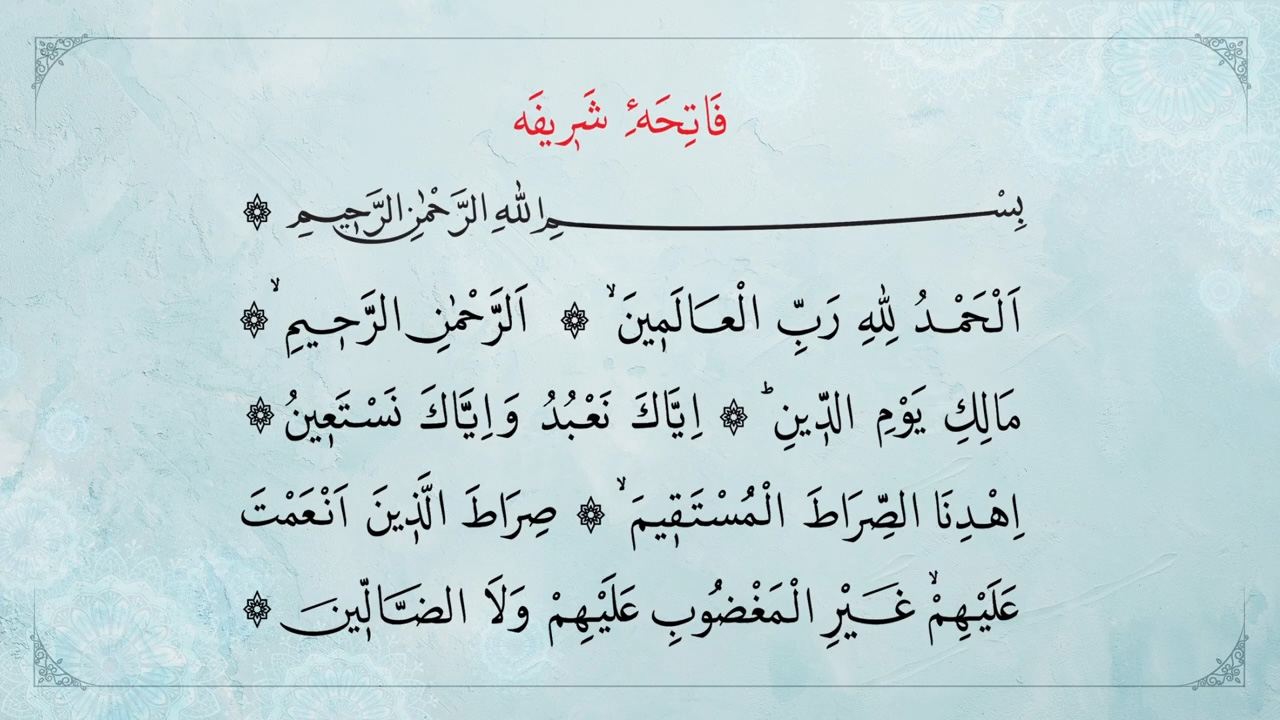 فَاتِحَهٔ شَرٖيفَه
بِسْمِ اللهِ الرَّحْمٰنِ الرَّحٖيمِ ۞
اَلْحَمْدُ لِلّٰهِ رَبِّ الْعَالَمٖينَۙ ۞ اَلرَّحْمٰنِ الرَّحٖيمِۙ ۞
مَالِكِ يَوْمِ الدّٖينِؕ ۞ اِيَّاكَ نَعْبُدُ وَاِيَّاكَ نَسْتَعٖينُ ۞
اِهْدِنَا الصِّرَاطَ الْمُسْتَقٖيمَۙ ۞ صِرَاطَ الَّذٖينَ اَنْعَمْتَ
عَلَيْهِمْۙ غَيْرِ الْمَغْضُوبِ عَلَيْهِمْ وَلَا الضَّالّٖينَ ۞